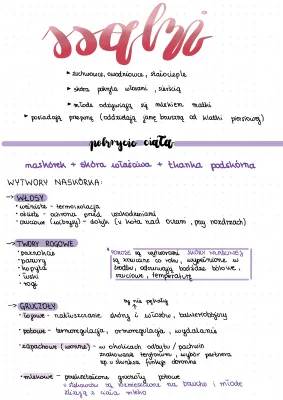 ssaki
• żuchwowce, owodniowce, stałocieplne
• skóra pokryta włosami, sierścią
• młode odżywiają się mlekiem matki
• posiadają przeponę (oddzielają jamę brzuszną od klatki piersiowej)
pokrycie ciała
naskórek + skóra właściwa + tkanka podskórna
WYTWORY NASKÓRKA:
→ WŁOSY
• wełniste - termoizolacja
• ościste - ochrona przed uszkodzeniami
• czuciowe (wibrysy) - dotyk (u kota nad oczam, przy nozdrzach)
→ TWORY ROGOWE
• paznokcie
• pazury
• kopyta
• łuski
• rogi
POROŻE są wytworami SKÓRY WŁAŚCIWEJ
są zrzucane co roku, wypełnione w
środku, odbierają bodźce bólowe,
czuciowe, temperaturę
→ GRUCZOŁY
by nie pękały
• łojowe - natłuszczanie skóry i włosów, bakteriobójczy
• potowe - termoregulacja, osmoregulacja, wydalanie
• zapachowe (wonne) - w okolicach odbytu / pachwin
znakowanie terytorium, wybór partnera
np. u skunksa funkcja obronna
• mlekowe - przekształcone gruczoły potowe
u stekowców są rozmieszczone na brzuchu i młode
zlizują z ciała mleko